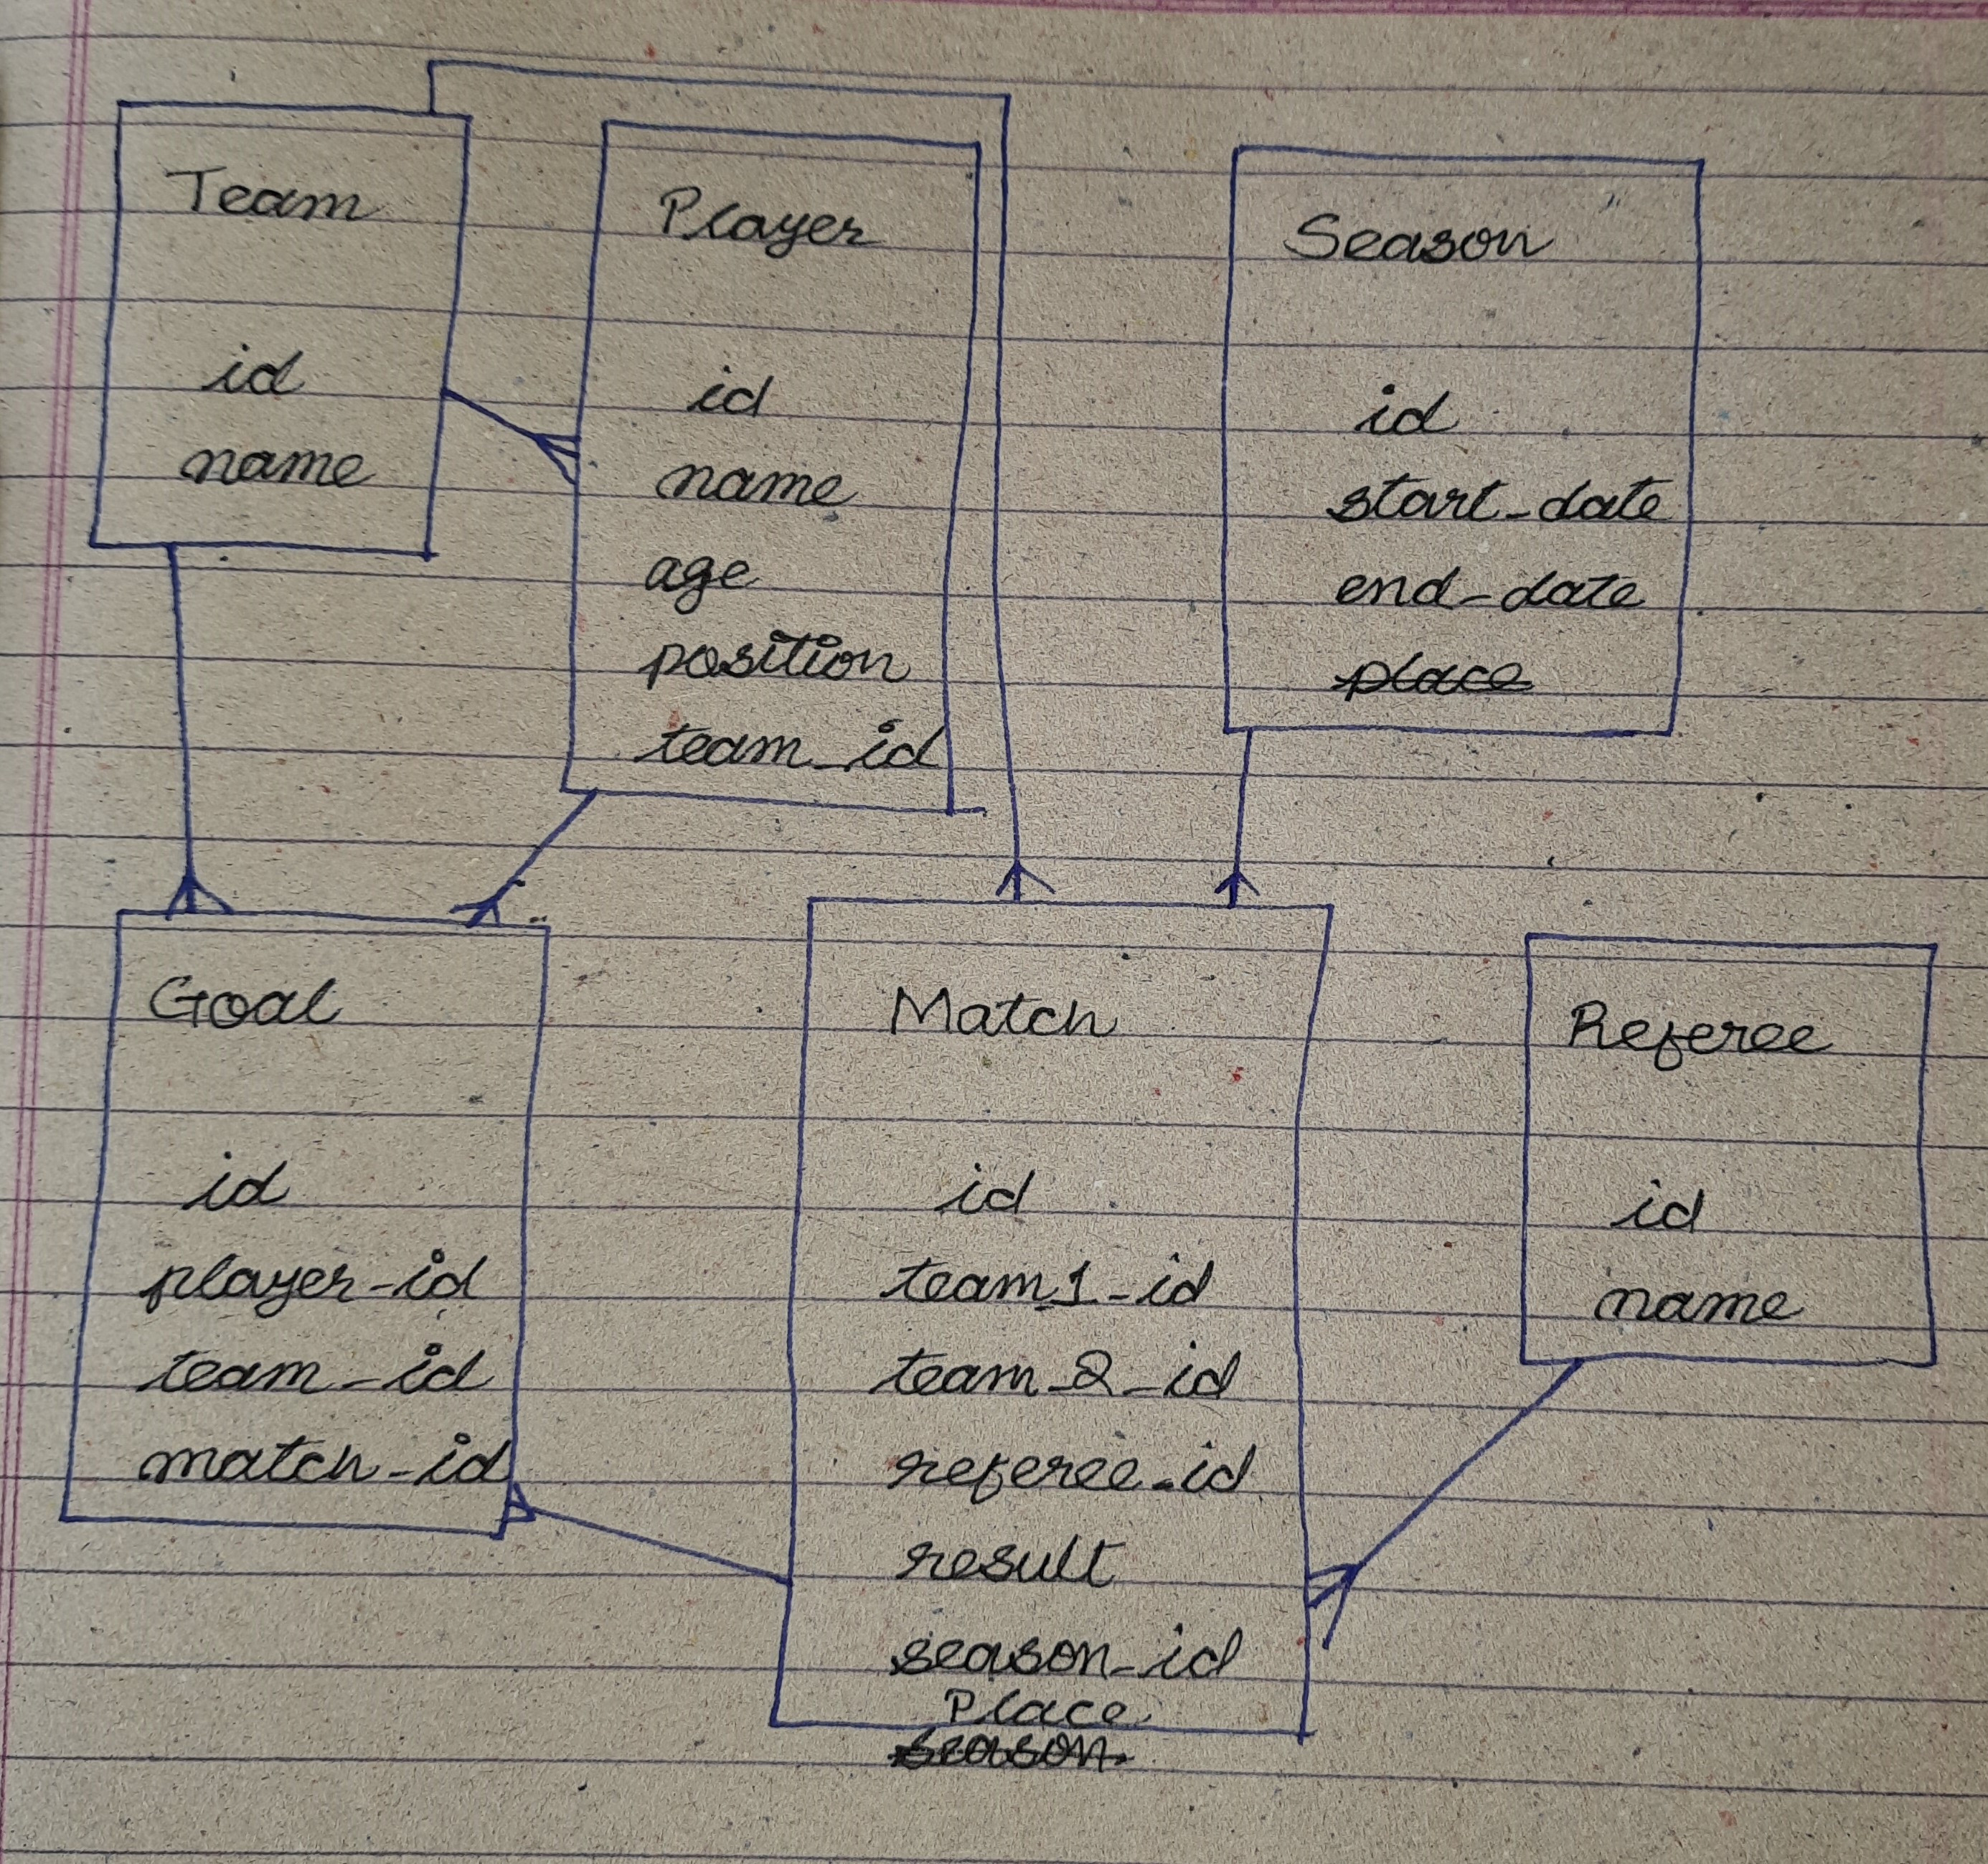 Team
id
name
Player
id
name
age
position
team_id
Season
id
start_date
end_date
place
Goal
id
player_id
team_id
match_id
Match
id
team1_id
team_2_id
referee_id
result
season_id
Place
season
Referee
id
name